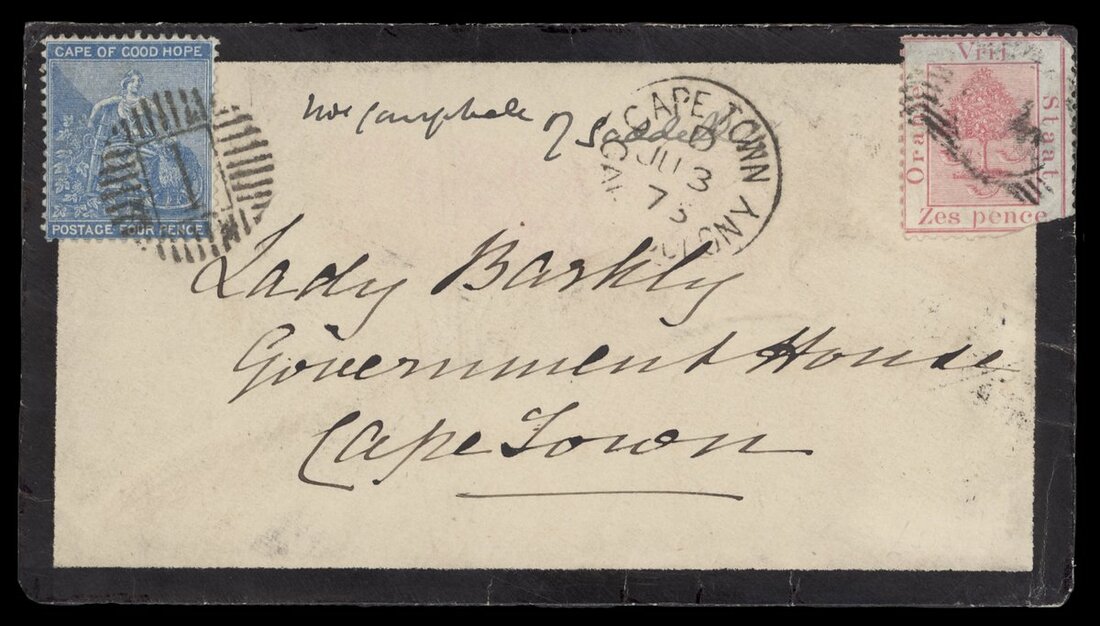 CAPE OF GOOD HOPE
POSTAGE FOUR PENCE
1
of Saddell
CAPE TOWN
JU 3
COLONY
Vrij
Oranje
Staat.
Zes pence
Lady Barkly
Government House
Cape Town